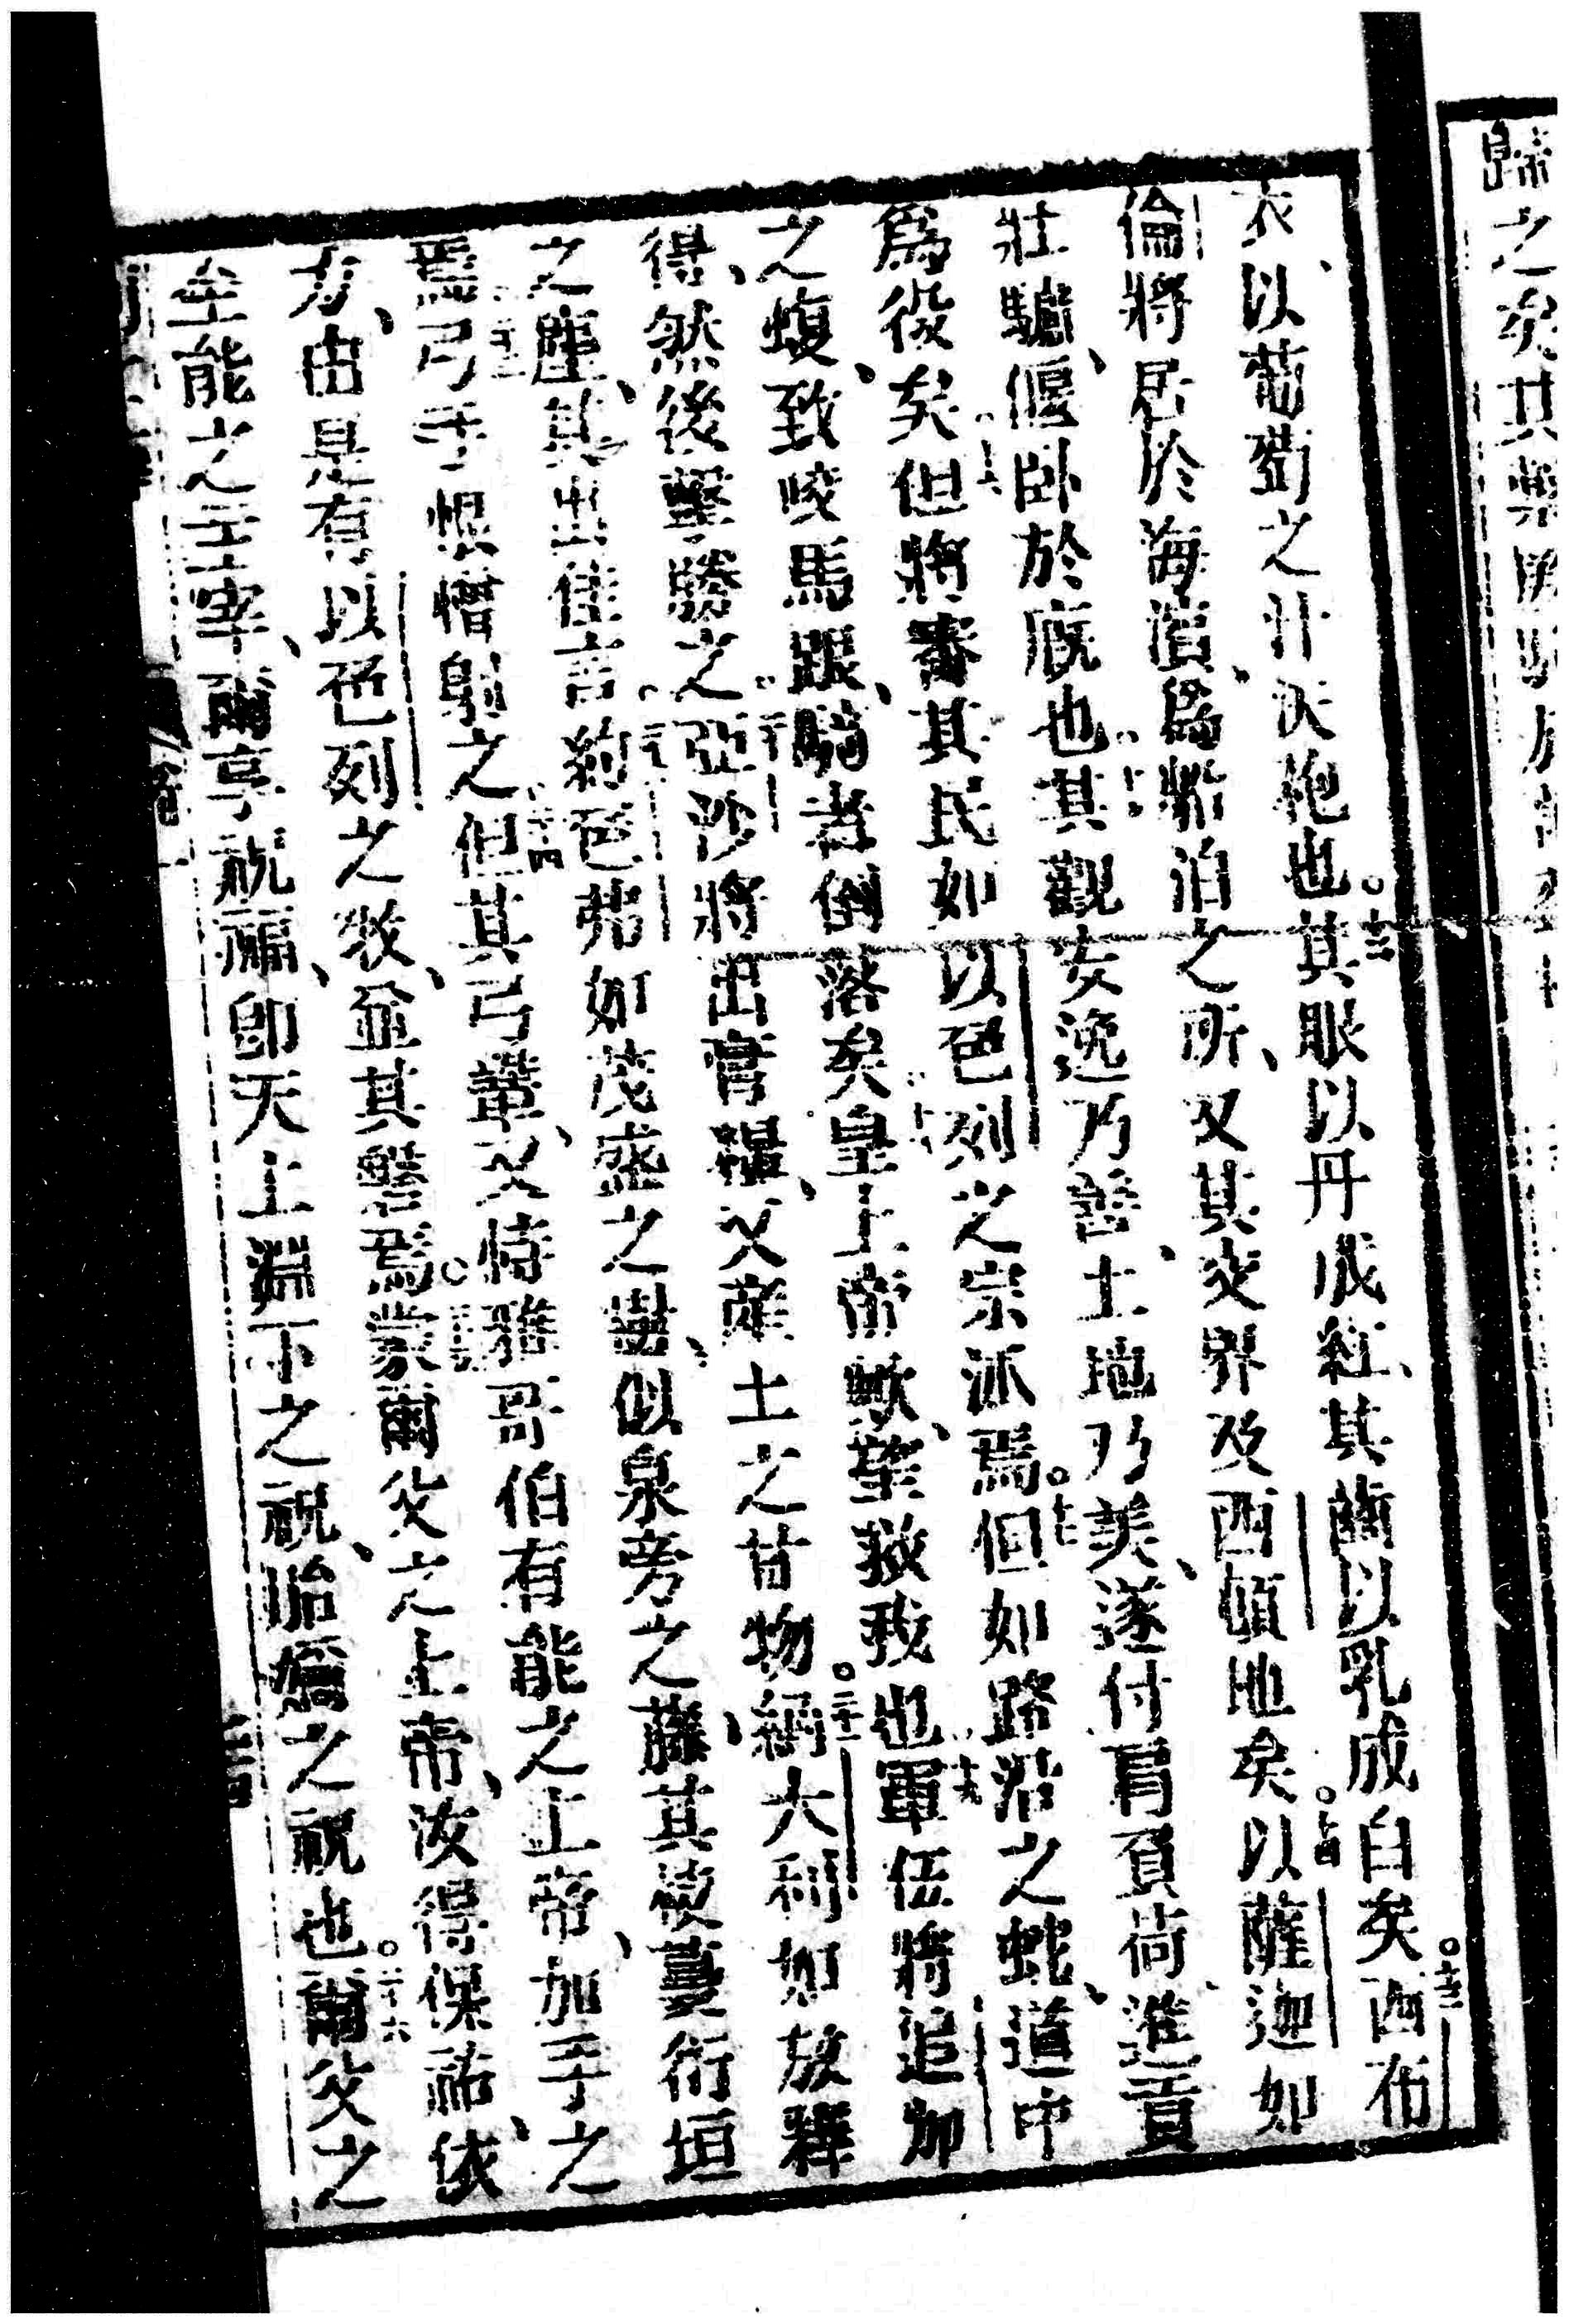 歸之矣其
衣、以葡萄之汁洗袍也。十二其眼以丹成紅、其齒以乳成白矣。十三西布
倫將居於海濱、爲船泊之所、又其交界及西頓地矣。十四以薩迦如
壯驢、偃臥於廐也。十五其觀安逸乃善、土地乃美、遂付肩負荷、進貢
爲役矣。十六但將審其民如以色列之宗派焉。十七但如路沿之蛇、道中
之蝮、致咬馬跟、騎者倒落矣。十八皇上帝歟、望救我也。十九軍伍將追加
得、然後擊勝之。二十亞沙將出膏糧、又產土之甘物。二十一納大利如放釋
之麀、其出佳言。二十二約色弗如茂盛之樹、似泉旁之藤、其枝蔓衍垣
焉。二十三弓手恨憎射之。二十四但其弓肇、又恃雅哥伯有能之上帝、加手之
力、由是有以色列之牧、並其磐焉。二十五蒙爾父之上帝、汝得保祐、依
全能之主宰、爾享祝福、卽天上淵下之祝、胎懷之祝也。二十六爾父之